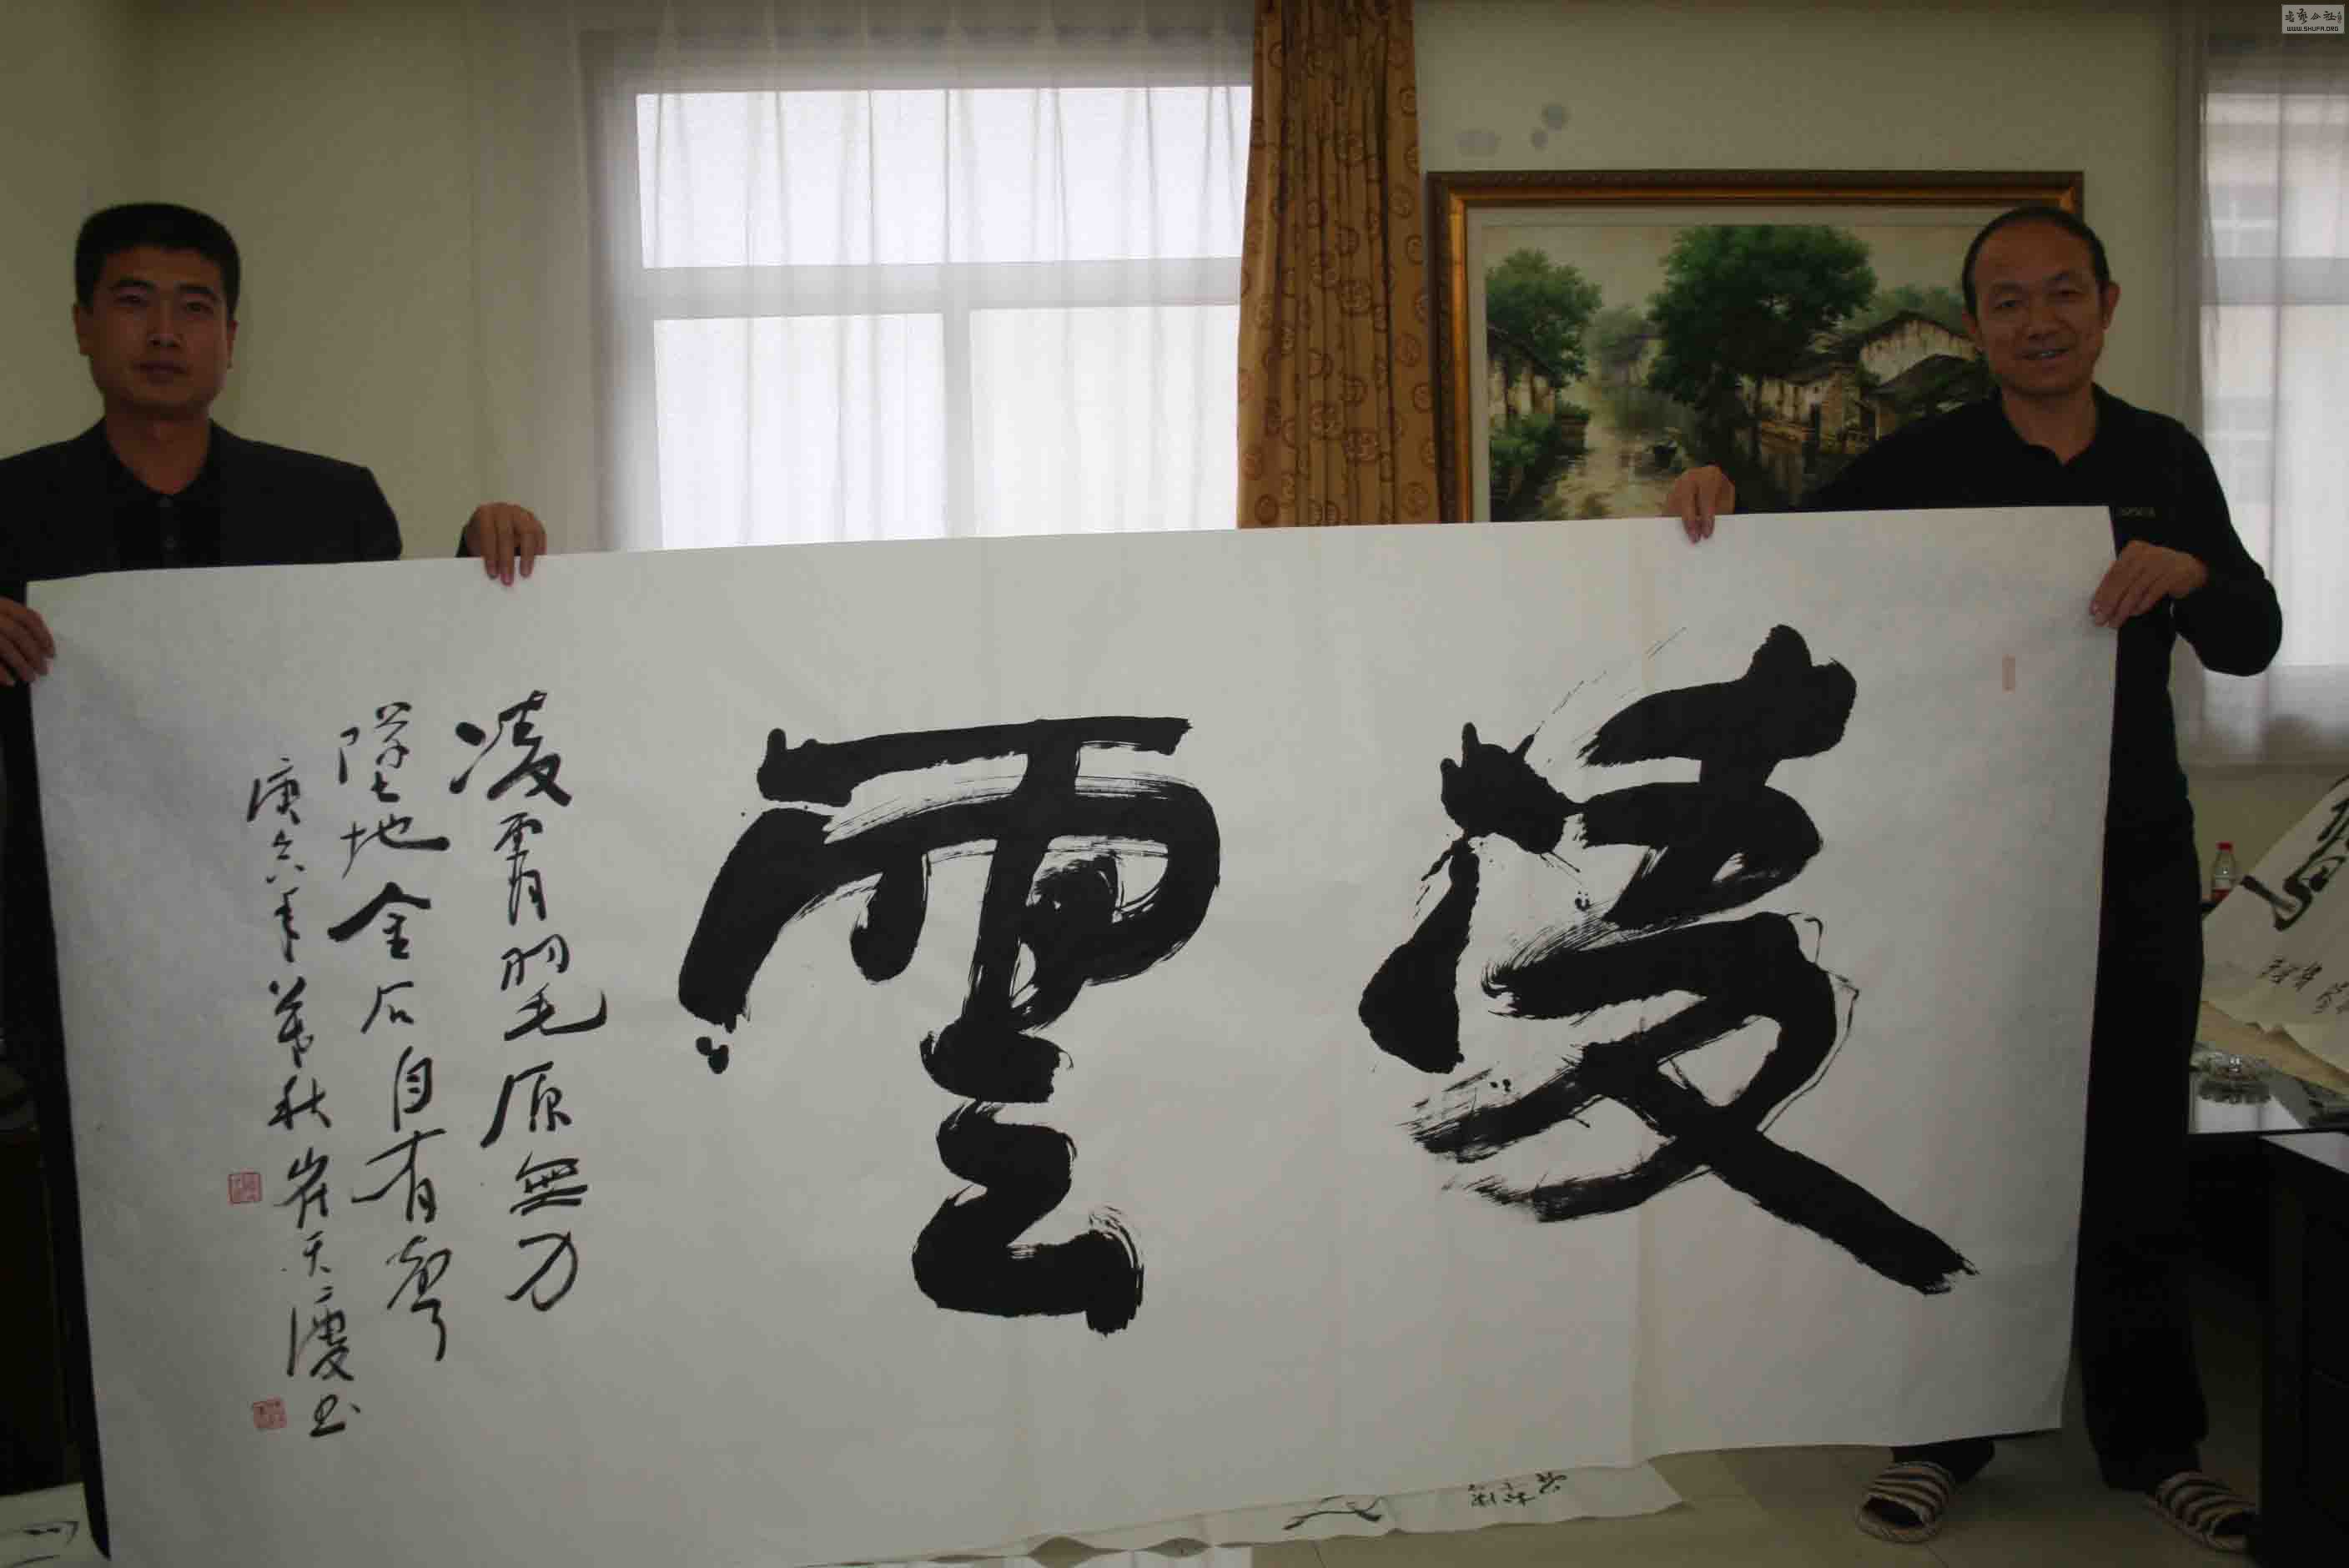 凌雲
凌霄羽毛原無力
墜地金石自有聲
庚寅年暮秋崔天书
书艺公社
WWW.SHUFA.ORG